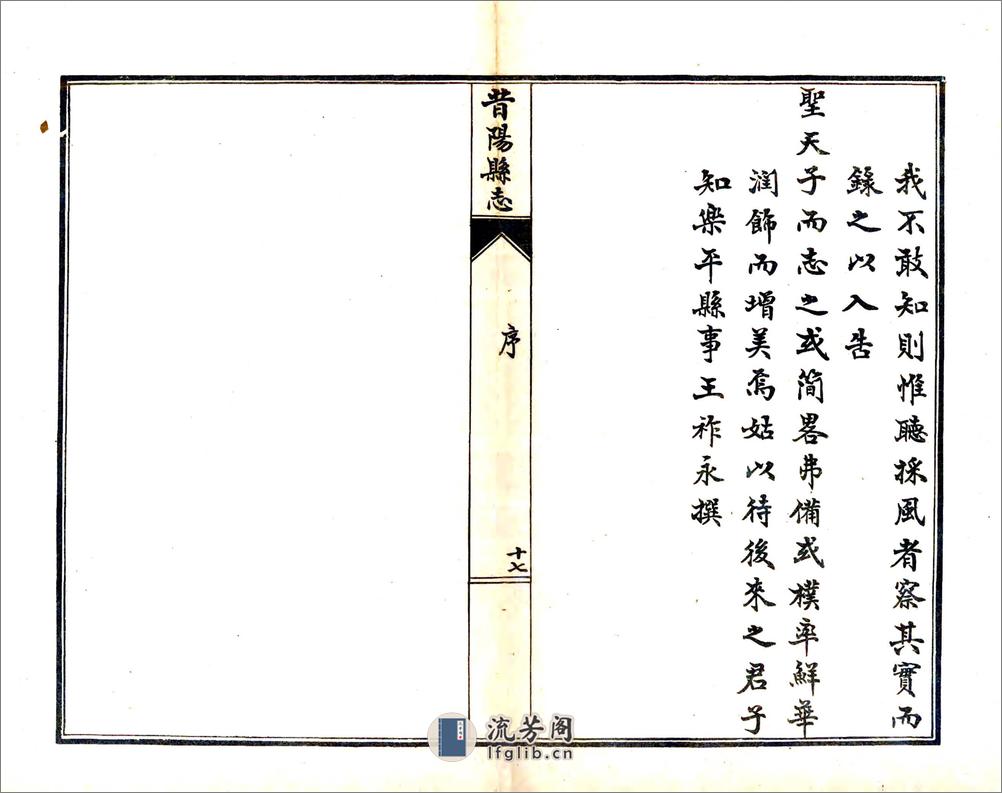 我不敢知則惟聽採風者察其實而
錄之以入告
聖天子而志之或简畧弗備或樸率鮮華
潤飾而增美焉姑以待後來之君子
知樂平縣事王祚永撰
昔陽縣志
序
十七
流芳阁
lfglib.cn